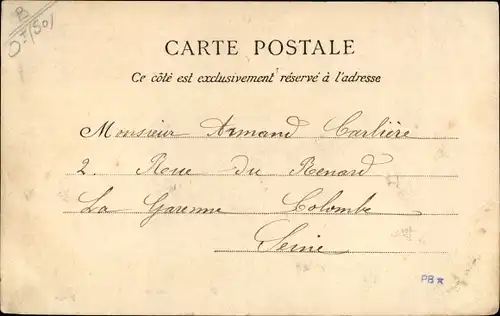 CARTE POSTALE
Ce côté est exclusivement réservé à l'adresse
Monsieur Armand Carlière
2. Roue du Renard
La Garenne Colombe
Seine
PB